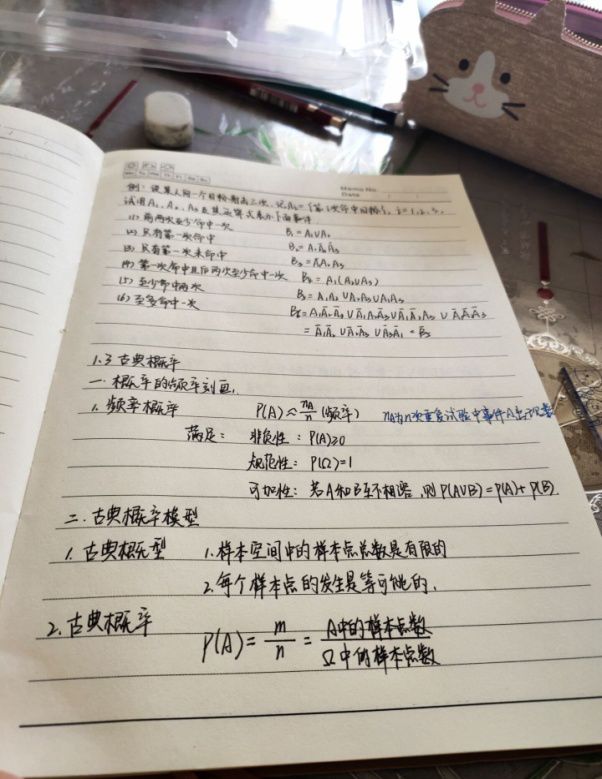 Memo No.
Date
例：设某人向一个目标射击三次，记Aᵢ={第i次命中目标}，i=1,2,3，
试用A₁，A₂，A₃及其运算关系表示下面事件
(1) 前两次至少命中一次 B₁=A₁∪A₂
(2) 只有第一次命中 B₂=A₁Ā₂Ā₃
(3) 只有第一次未命中 B₃=Ā₁A₂A₃
(4) 第一次命中且后两次至少命中一次 B₄=A₁(A₂∪A₃)
(5) 至少命中两次 B₅=A₁A₂∪A₂A₃∪A₁A₃
(6) 至多命中一次 B₆=A₁Ā₂Ā₃∪Ā₁A₂Ā₃∪Ā₁Ā₂A₃∪Ā₁Ā₂Ā₃
=Ā₁Ā₂∪Ā₂Ā₃∪Ā₃Ā₁=B̄₅
1.3 古典概率
一. 概率的频率刻画.
1. 频率概率 P(A)≈nA/n (频率) nA为n次重复试验中事件A出现数
满足： 非负性：P(A)≥0
规范性：P(Ω)=1
可加性：若A和B互不相容，则P(A∪B)=P(A)+P(B).
二. 古典概率模型
1. 古典概型 1. 样本空间中的样本点总数是有限的
2. 每个样本点的发生是等可能的.
2. 古典概率 P(A)=m/n=A中的样本点数/Ω中的样本点数